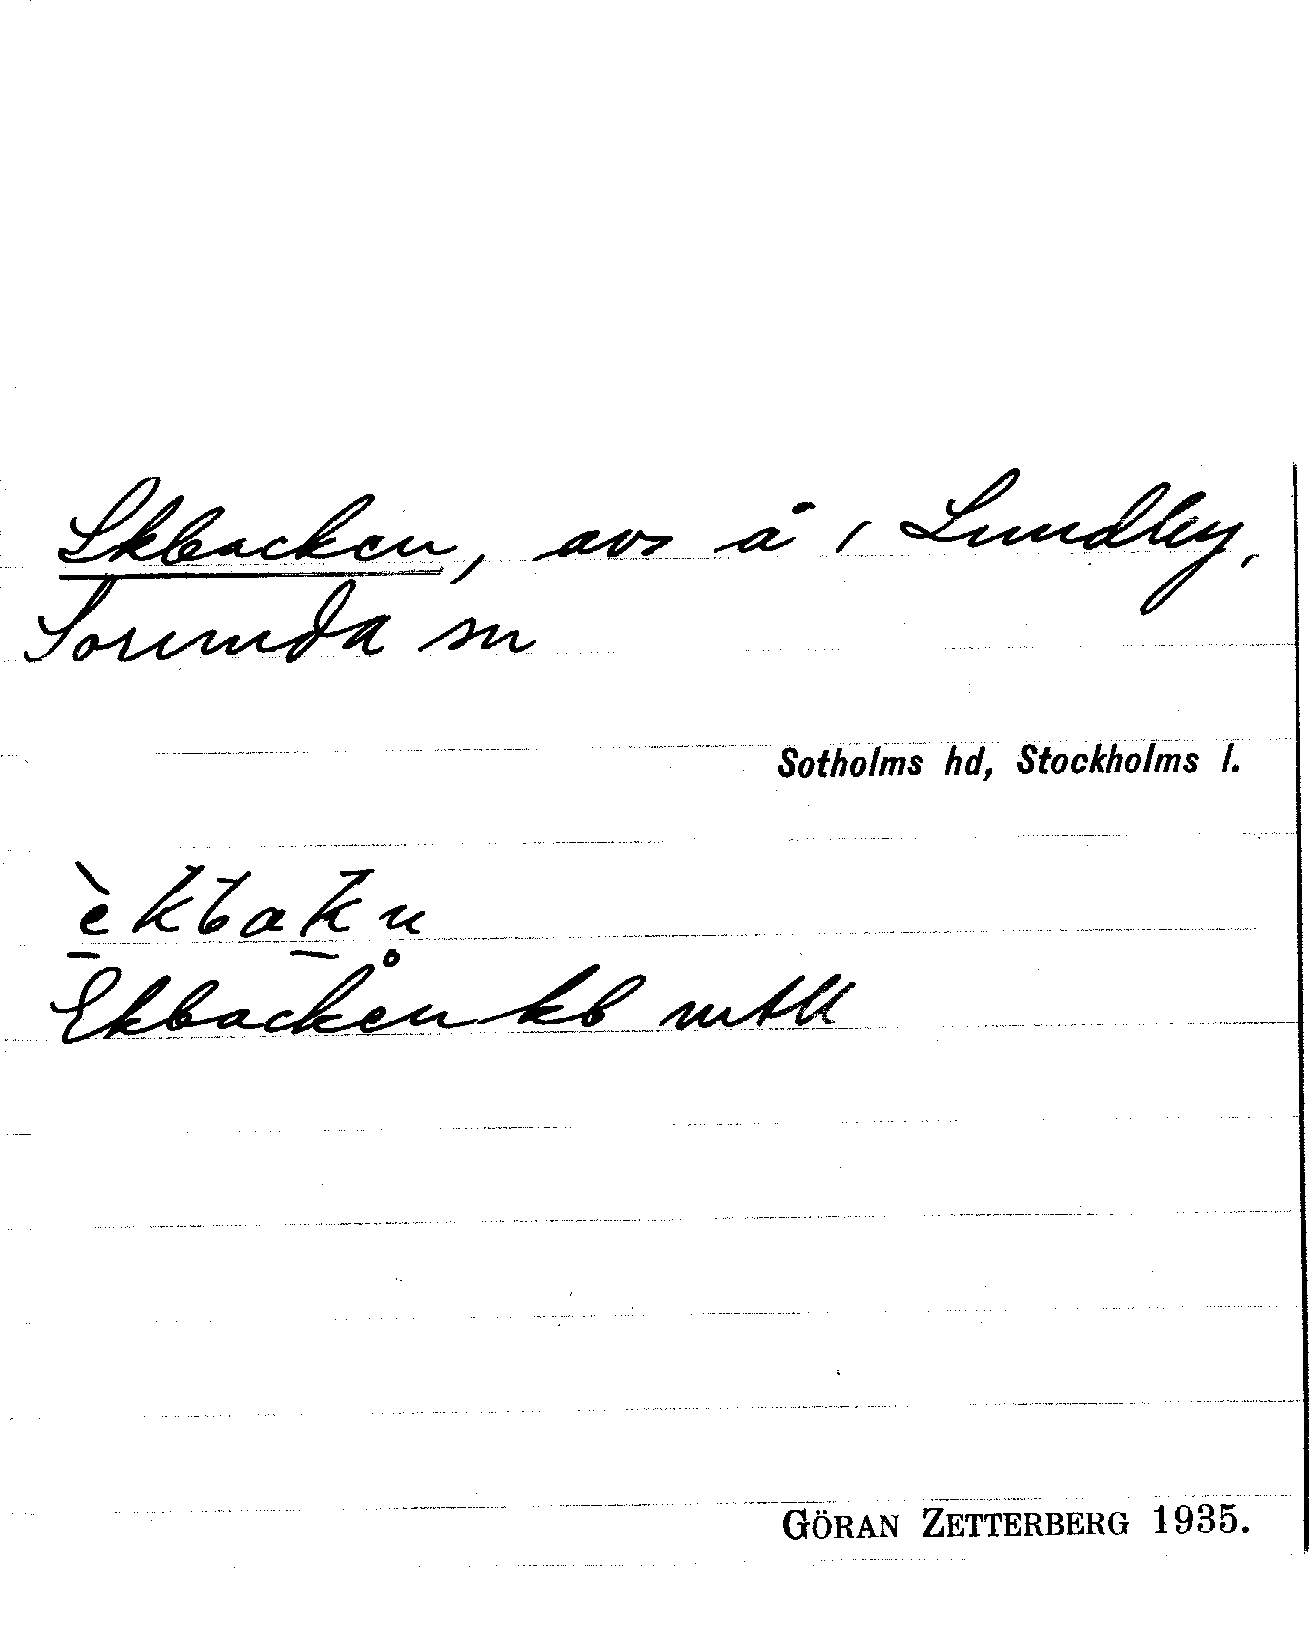 Ekbacken, avs å i Lundby,
Sorunda sn
Sotholms hd, Stockholms l.
èkbakn̥
Ekbacken kb mtll
GÖRAN ZETTERBERG 1935.